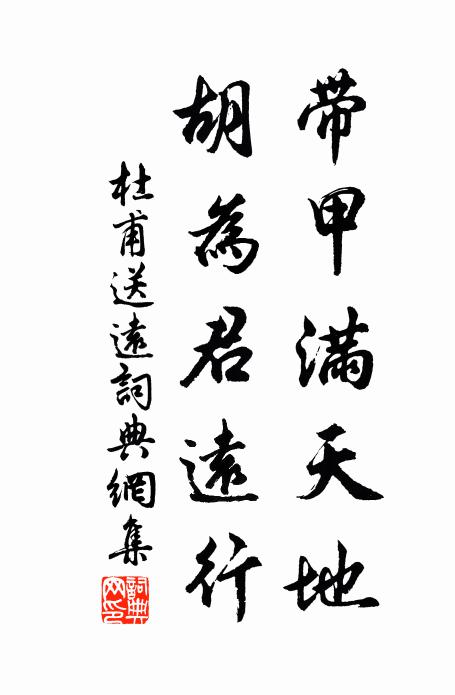 帶甲滿天地
胡為君遠行
杜甫送遠詞典網集
詞典網印